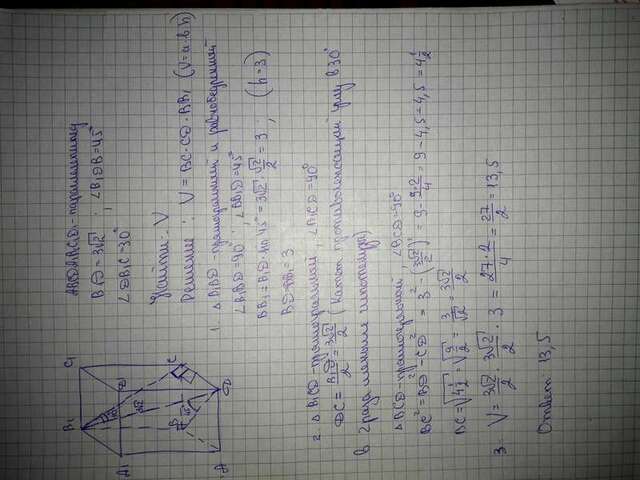 ABCDA1B1C1D1 - параллелепипед
B1D = 3√2 ; ∠B1DB = 45°
∠DB1C = 30°
Найти: V
Решение: V = BC · CD · BB1 (V = a·b·h)
1. Δ B1BD - прямоугольный и равнобедренный
∠B1BD = 90° ; ∠BB1D = 45°
BB1 = B1D · sin 45° = 3√2 · √2/2 = 3 ; (h = 3)
BD = BB1 = 3
2. Δ B1CD - прямоугольный, ∠B1CD = 90°
DC = B1D/2 = 3√2/2 (катет противолежащий углу в 30°
в 2 раза меньше гипотенузы)
Δ BCD - прямоугольный, ∠BCD = 90°
BC² = BD² - CD² = 3² - (3√2/2)² = 9 - 9·2/4 = 9 - 4,5 = 4,5 = 4 1/2
BC = √4 1/2 = √9/2 = 3/√2 = 3√2/2
3. V = 3√2/2 · 3√2/2 · 3 = 27·2/4 = 27/2 = 13,5
Ответ: 13,5
B1
C1
A1
D1
3√2
30°
B
45°
C
A
D